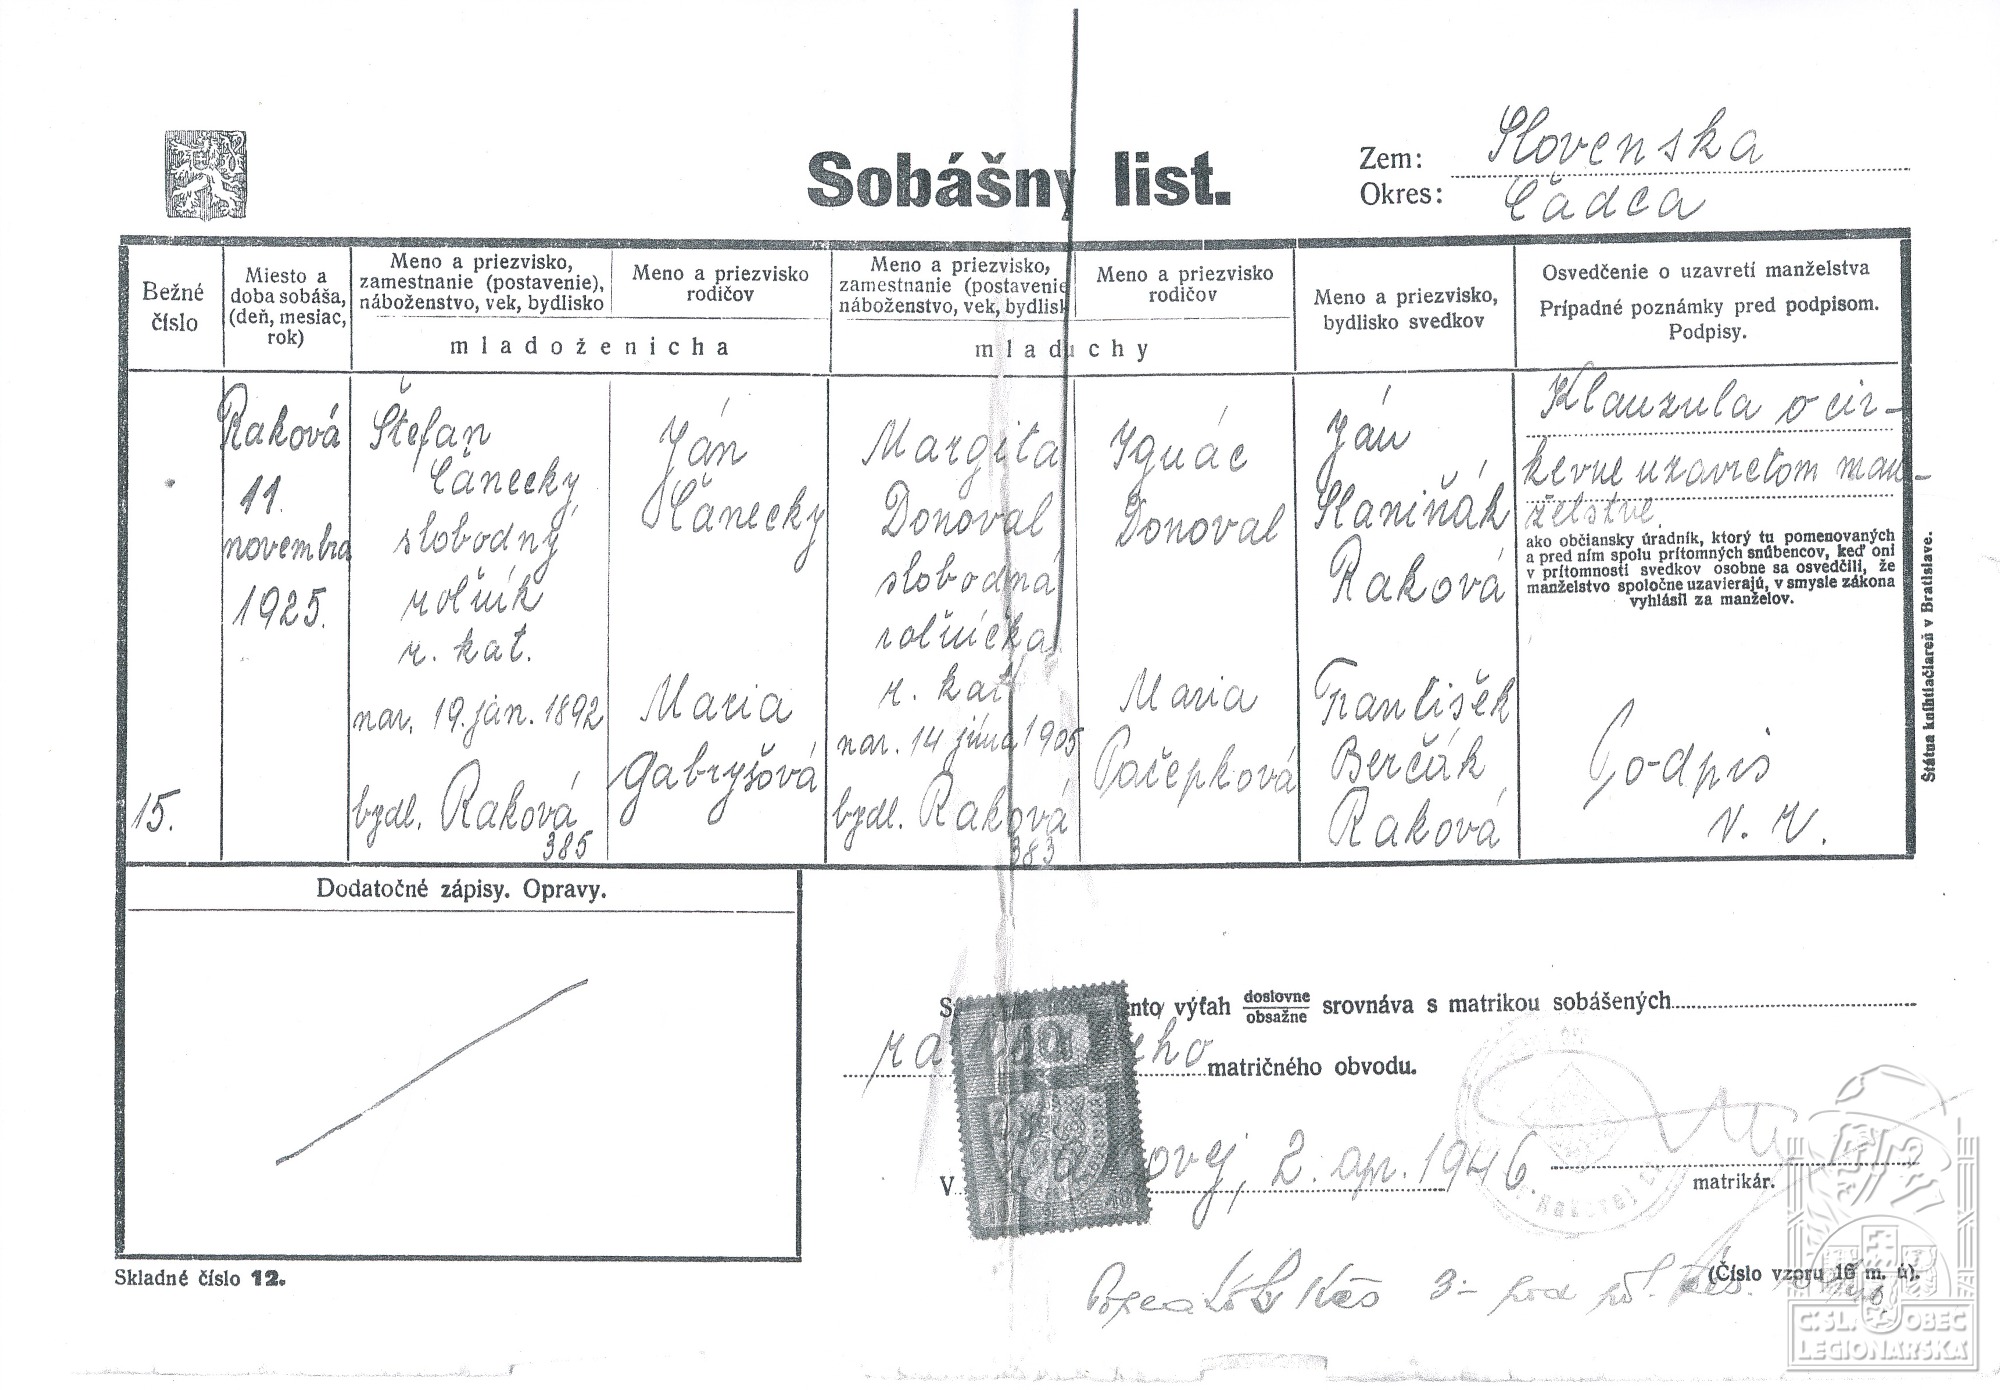 Sobášny list.
Zem: Slovenska
Okres: Čadca
Bežné číslo
Miesto a doba sobáša, (deň, mesiac, rok)
Meno a priezvisko, zamestnanie (postavenie), náboženstvo, vek, bydlisko
Meno a priezvisko rodičov
mladoženicha
Meno a priezvisko, zamestnanie (postavenie náboženstvo, vek, bydlisk
Meno a priezvisko rodičov
mladuchy
Meno a priezvisko, bydlisko svedkov
Osvedčenie o uzavretí manželstva
Prípadné poznámky pred podpisom.
Podpisy.
15.
Raková
11.
novembra
1925.
Štefan
Čanecky
slobodný
roľník
r. kat.
nar. 19. ján. 1892
bydl. Raková
385
Ján
Čanecky
Maria
Gabryšová
Margita
Donoval
slobodná
roľnícka
r. kat
nar. 14 júna 1905
bydl. Raková
383
Ignác
Donoval
Maria
Pačepková
Ján
Slaniňák
Raková
František
Berčák
Raková
Klauzula o cir-
kevne uzavretom man-
želstve.
ako občiansky úradník, ktorý tu pomenovaných
a pred ním spolu prítomných snúbencov, keď oni
v prítomnosti svedkov osobne sa osvedčili, že
manželstvo spoločne uzavierajú, v smysle zákona
vyhlásil za manželov.
Podpis
v. r.
Štátna kníhtlačiareň v Bratislave.
Dodatočné zápisy. Opravy.
výťah doslovne obsažne srovnáva s matrikou sobášených
matričného obvodu.
V ovej, 2. apr. 1946
matrikár.
40 40
Skladné číslo 12.
(Číslo vzoru 16 m. ú).
3- pod
Č. SL. OBEC
LEGIONÁŘSKÁ